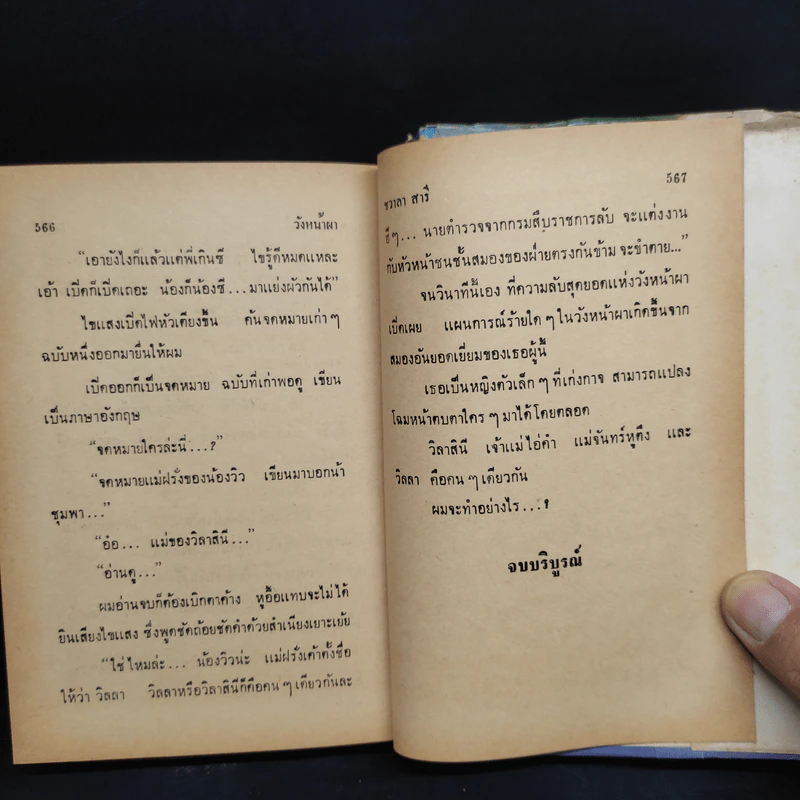 566 วังหน้าผา
“เอายังไงก็แล้วแต่พี่เกินซี ไขรู้ดีหมดแหละ
เอ้า เปิดก็เปิดเถอะ น้องก็น้องซี...มาแย่งผัวกันได้”
ไขแสงเปิดไฟหัวเตียงขึ้น ค้นจดหมายเก่า ๆ
ฉบับหนึ่งออกมายื่นให้ผม
เปิดออกก็เป็นจดหมาย ฉบับที่เก่าพอดู เขียน
เป็นภาษาอังกฤษ
“จดหมายใครล่ะนี่...?”
“จดหมายแม่ฝรั่งของน้องวิว เขียนมาบอกน้า
ชุมพา...”
“อ๋อ... แม่ของวิลาสินี...”
“อ่านดู...”
ผมอ่านจบก็ต้องเบิกตาค้าง หูอื้อแทบจะไม่ได้
ยินเสียงไขแสง ซึ่งพูดชัดถ้อยชัดคำด้วยสำเนียงเยาะเย้ย
“ใช่ไหมล่ะ... น้องวิวน่ะ แม่ฝรั่งเค้าตั้งชื่อ
ให้ว่า วิลลา วิลลาหรือวิลาสินีก็คือคน ๆ เดียวกันละ
ชวาลา สารี 567
ฮี ๆ... นายตำรวจจากกรมสืบราชการลับ จะแต่งงาน
กับหัวหน้าชนชั้นสมองของฝ่ายตรงกันข้าม จะขำตาย...”
จนวินาทีนี้เอง ที่ความลับสุดยอดแห่งวังหน้าผา
เปิดเผย แผนการณ์ร้ายใด ๆ ในวังหน้าผาเกิดขึ้นจาก
สมองอันยอดเยี่ยมของเธอผู้นี้
เธอเป็นหญิงตัวเล็ก ๆ ที่เก่งกาจ สามารถแปลง
โฉมหน้าตบตาใคร ๆ มาได้โดยตลอด
วิลาสินี เจ้าแม่ไอ่คำ แม่จันทร์หุตึง และ
วิลลา คือคน ๆ เดียวกัน
ผมจะทำอย่างไร...?
จบบริบูรณ์